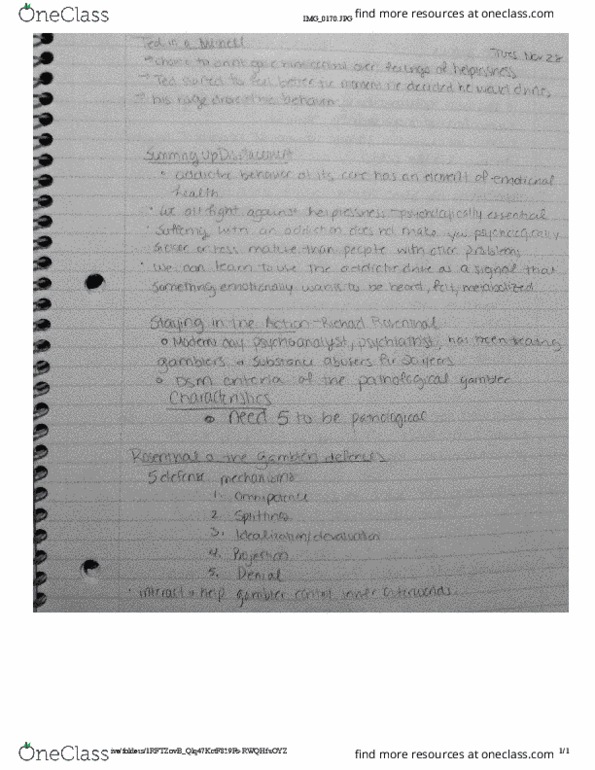 OneClass
IMG_0170.JPG
find more resources at oneclass.com
Ted in a
Tues Nov 28
control over feelings of helplessness
Ted started to feel better the moment he decided he would drink,
this huge drove the behavior
Summing Up Displacement
• addictive behavior at its core has an element of emotional
health
• We all fight against helplessness - psychologically essential
• Suffering with an addiction does not make you psychologically
sicker or less mature than people with other problems
• We can learn to use the addictive drive as a signal that
something emotionally wants to be heard, felt, metabolized
Staying in the Action - Richard Rosenthal
o Modern day psychoanalyst, psychiatrist, has been treating
gamblers + substance abusers for 30 years
o DSM criteria of the pathological gambler
Characteristics
o need 5 to be pathological
Rosenthal + the Gamblers defenses
5 defense mechanisms
1. Omnipotence
2. Splitting
3. Idealization/devaluation
4. Projection
5. Denial
• interact + help gambler control inner
OneClass
1/1
find more resources at oneclass.com